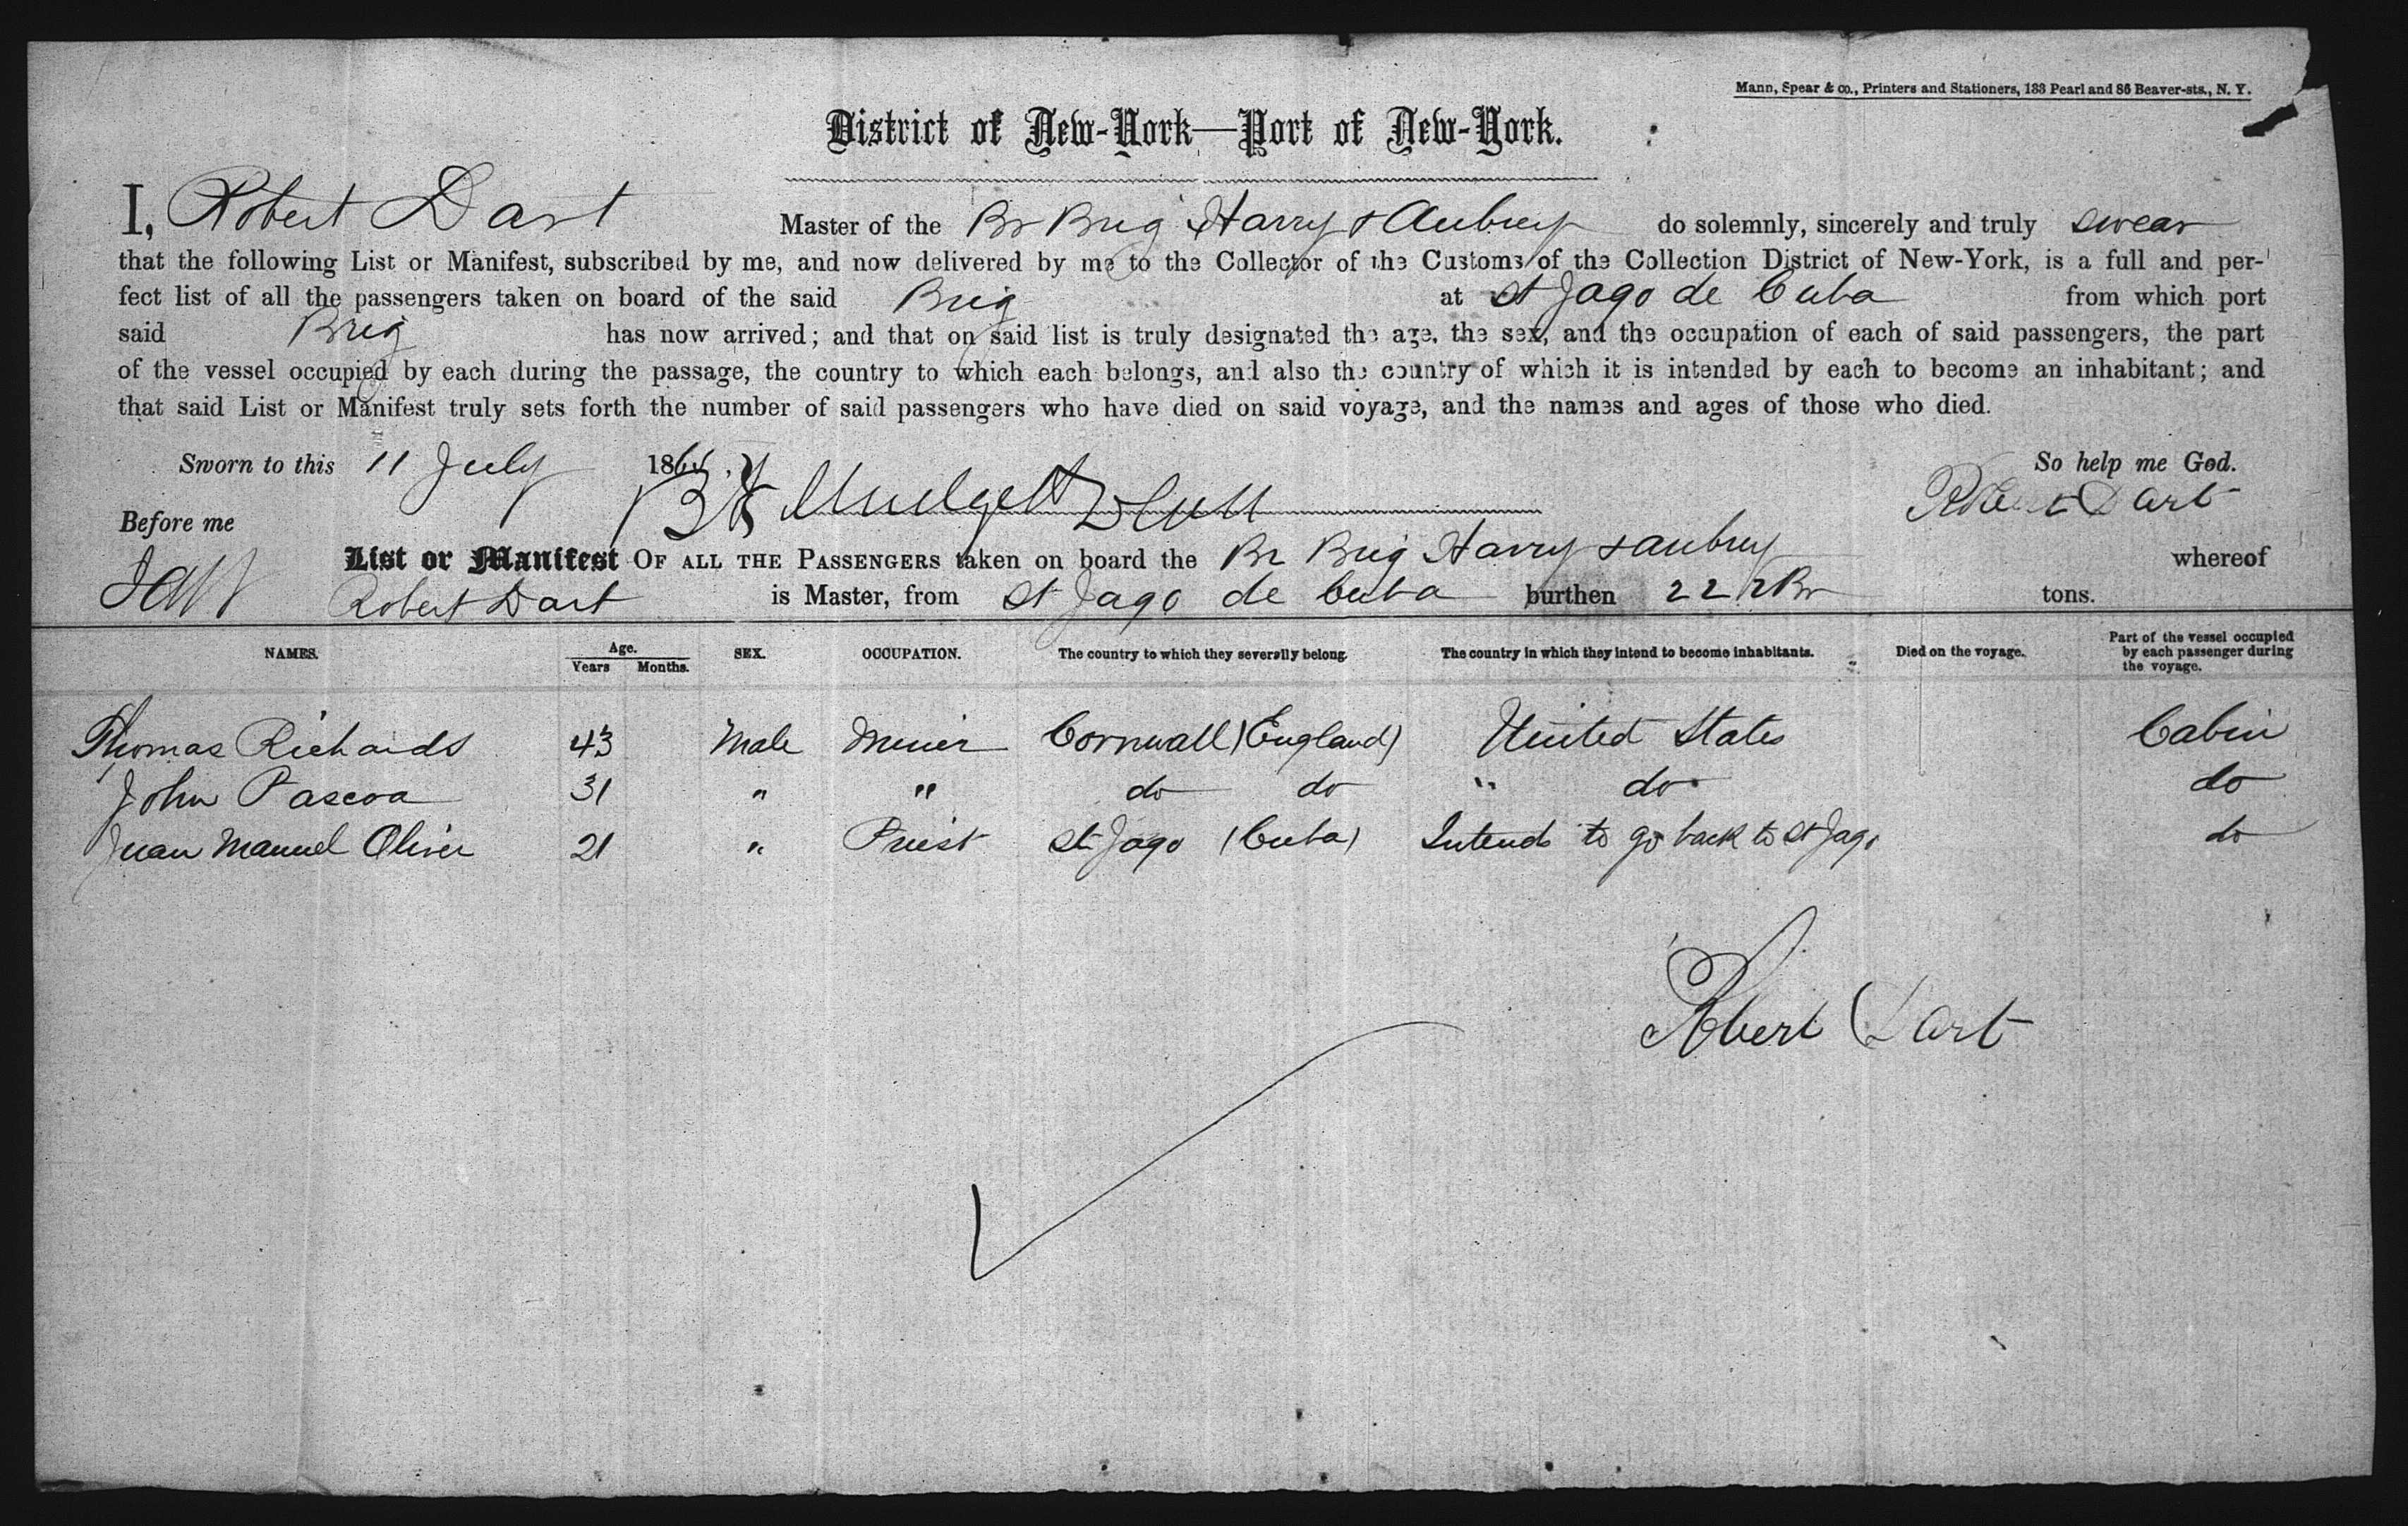 Mann, Spear & co., Printers and Stationers, 133 Pearl and 86 Beaver-sts., N. Y.
District of New-York—Port of New-York.
I, Robert Dart Master of the Br Brig Harry & Aubrey do solemnly, sincerely and truly swear
that the following List or Manifest, subscribed by me, and now delivered by me to the Collector of the Customs of the Collection District of New-York, is a full and per-
fect list of all the passengers taken on board of the said Brig at St Jago de Cuba from which port
said Brig has now arrived; and that on said list is truly designated the age, the sex, and the occupation of each of said passengers, the part
of the vessel occupied by each during the passage, the country to which each belongs, and also the country of which it is intended by each to become an inhabitant; and
that said List or Manifest truly sets forth the number of said passengers who have died on said voyage, and the names and ages of those who died.
Sworn to this 11 July 186 So help me God.
Before me Robert Dart
List or Manifest OF ALL THE PASSENGERS taken on board the Br Brig Harry & Aubrey whereof
Robert Dart is Master, from St Jago de Cuba burthen tons.
NAMES. Age. Years Months. SEX. OCCUPATION. The country to which they severally belong. The country in which they intend to become inhabitants. Died on the voyage. Part of the vessel occupied by each passenger during the voyage.
Thomas Richards 43 Male Miner Cornwall (England) United States Cabin
John Pascoa 31 " " do do " do do
Juan Manuel Oliver 21 " Priest St Jago (Cuba) Intends to go back to St Jago do
Robert Dart